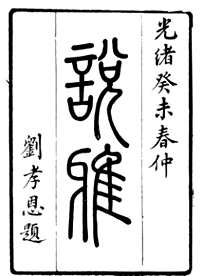 光緒癸未春仲
說雅
劉孝恩題